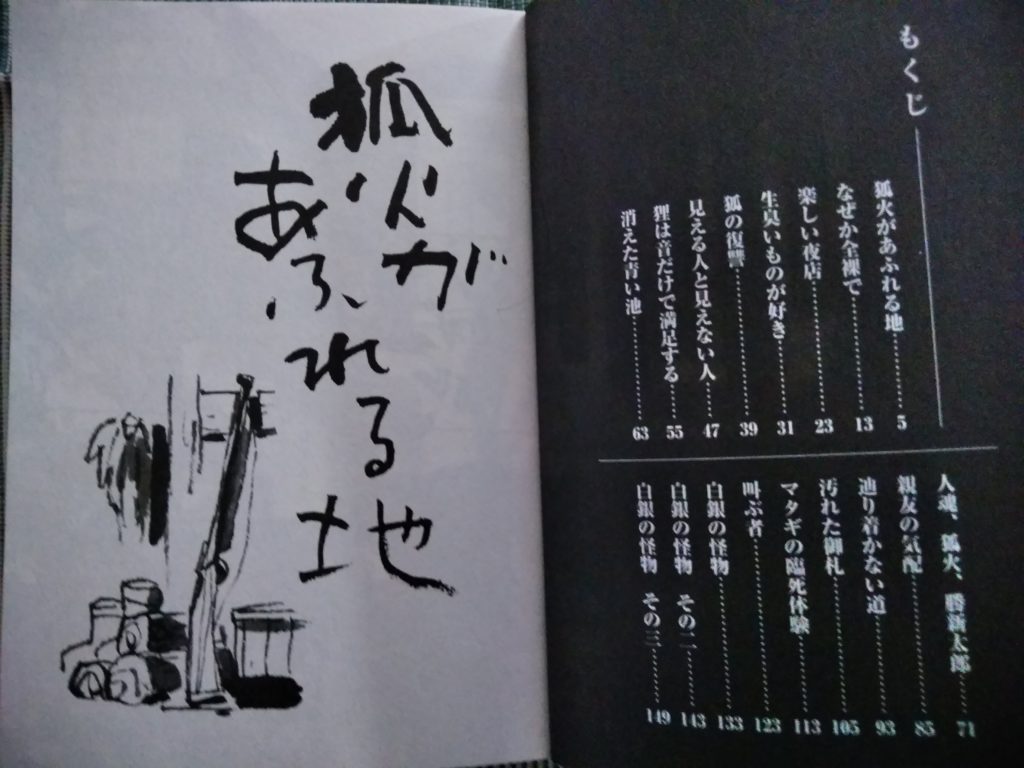 もくじ
狐火があふれる地 5
なぜか全裸で 13
楽しい夜店 23
生臭いものが好き 31
狐の復讐 39
見える人と見えない人 47
狸は音だけで満足する 55
消えた青い池 63
人魂、狐火、勝新太郎 71
親友の気配 85
辿り着かない道 93
汚れた御札 105
マタギの臨死体験 113
叫ぶ者 123
白銀の怪物 133
白銀の怪物 その二 143
白銀の怪物 その三 149
狐火が
あふれる地